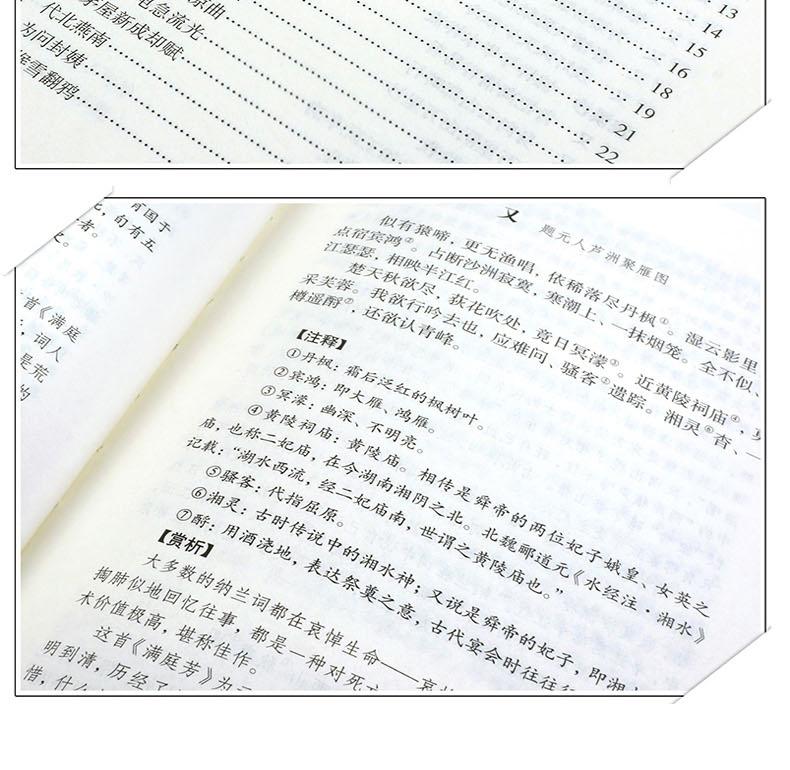 曲
急流光
屋新成却赋
代北燕南
为问封姨
雪翻鸦
13
14
15
16
18
19
21
22
国于
旬有五
者。
首《满庭
词人
是荒
的
又 题元人芦洲聚雁图
似有猿啼，更无渔唱，依稀落尽丹枫①。湿云影里
点宿宾鸿②。占断沙洲寂寞，寒潮上、一抹烟笼。全不似、
江瑟瑟，相映半江红。
楚天秋欲尽，荻花吹处，竟日冥濛③。近黄陵祠庙④，
采芙蓉。我欲行吟去也，应难问、骚客⑤遗踪。湘灵⑥杳、一
樽遥酹⑦，还欲认青峰。
【注释】
①丹枫：霜后泛红的枫树叶。
②宾鸿：即大雁、鸿雁。
③冥濛：幽深、不明亮。
④黄陵祠庙：黄陵庙。相传是舜帝的两位妃子娥皇、女英之
庙，也称二妃庙，在今湖南湘阴之北。北魏郦道元《水经注·湘水》
记载：“湖水西流，经二妃庙南，世谓之黄陵庙也。”
⑤骚客：代指屈原。
⑥湘灵：古时传说中的湘水神；又说是舜帝的妃子，即湘
⑦酹：用酒浇地，表达祭奠之意，古代宴会时往往行
【赏析】
大多数的纳兰词都在哀悼生命——哀
掏肺似地回忆往事，都是一种对死
术价值极高，堪称佳作。
这首《满庭芳》为
明到清，历经了
惜，什么